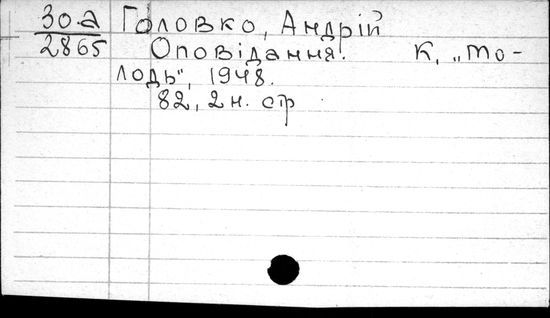 30-а Головко, Андрій
2865 Оповідання. К, „Мо-
лодь“, 1948.
82, 2 н. стр